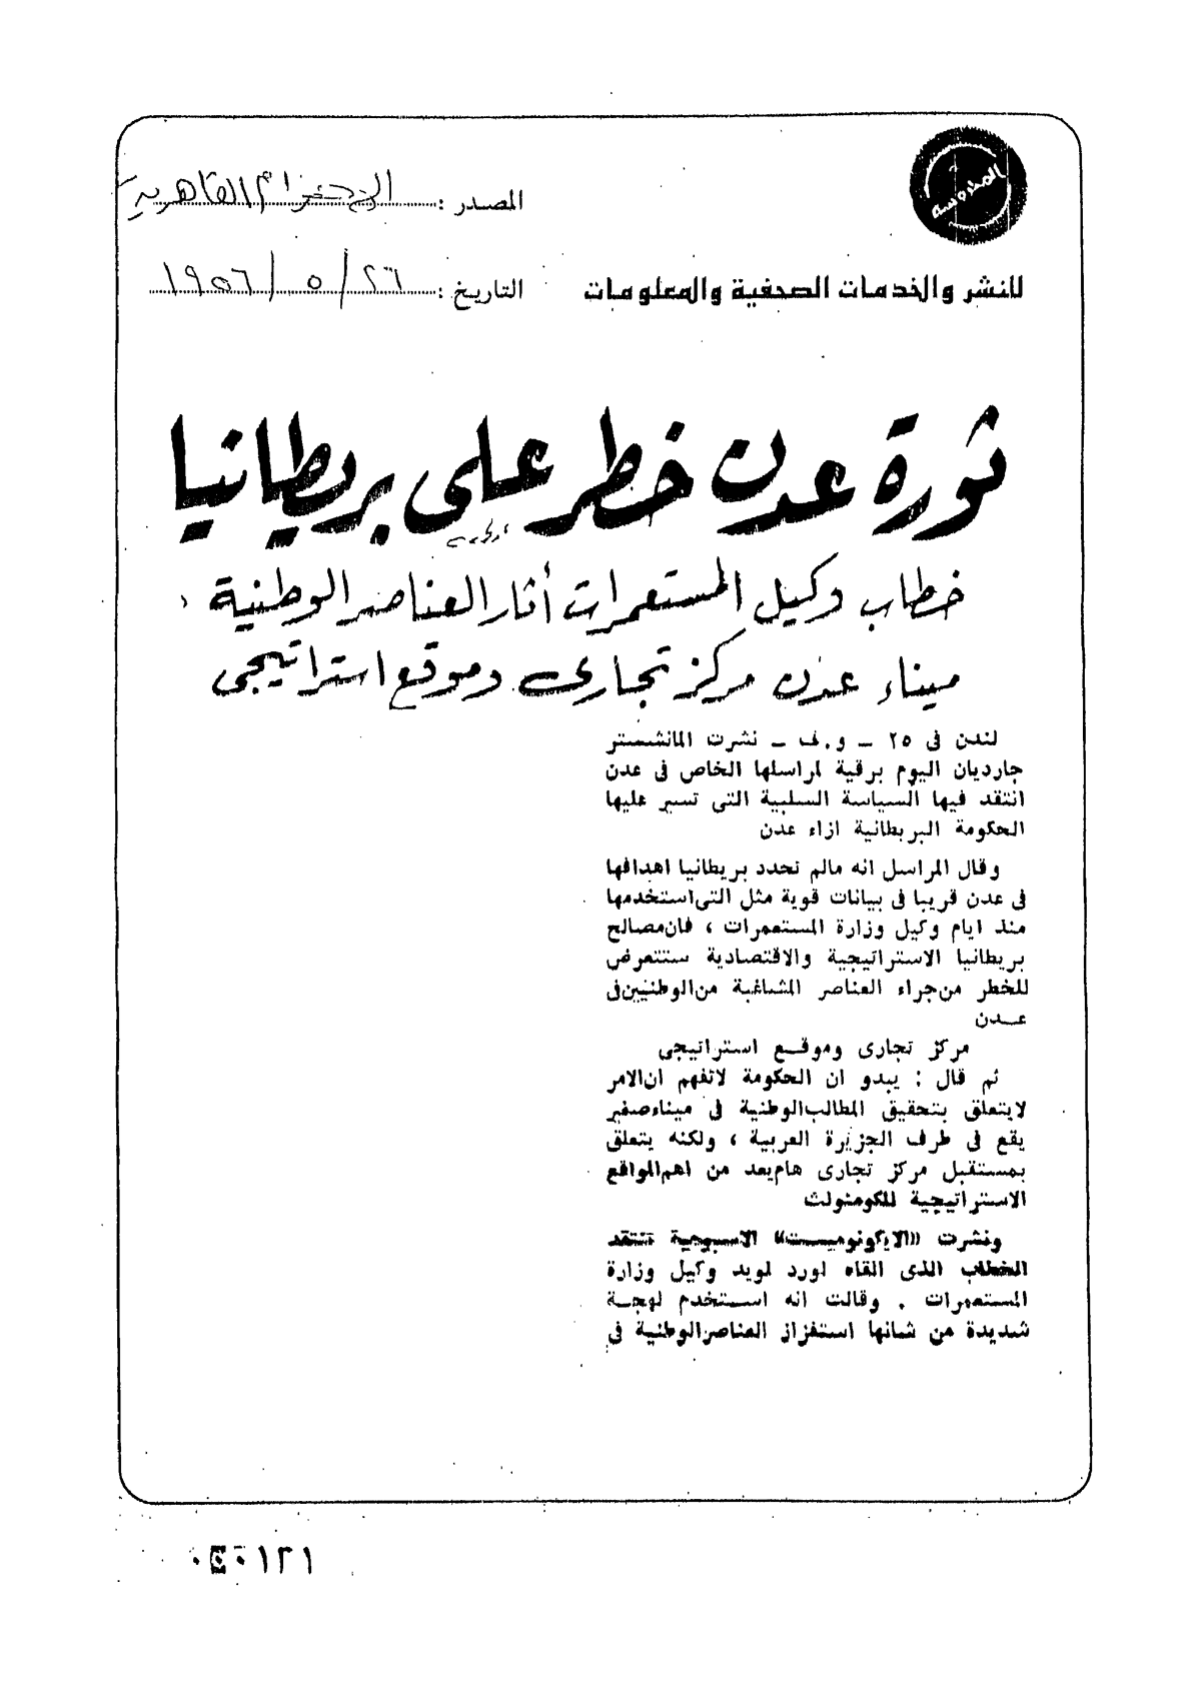 المحروسة
المصدر : الاهرام القاهرية
للنشر والخدمات الصحفية والمعلومات
التاريخ : ٢٦ / ٥ / ١٩٥٦
ثورة عدن خطر على بريطانيا
خطاب وكيل المستعمرات أثار العناصر الوطنية
ميناء عدن مركز تجارى وموقع استراتيجى
لندن فى ٢٥ ــ و.ف ــ نشرت المانشستر
جارديان اليوم برقية لمراسلها الخاص فى عدن
انتقد فيها السياسة السلبية التى تسير عليها
الحكومة البريطانية ازاء عدن
وقال المراسل انه مالم تحدد بريطانيا اهدافها
فى عدن قريبا فى بيانات قوية مثل التى استخدمها
منذ ايام وكيل وزارة المستعمرات ، فان مصالح
بريطانيا الاستراتيجية والاقتصادية ستتعرض
للخطر من جراء العناصر المشاغبة من الوطنيين فى
عــدن
مركز تجارى وموقــع استراتيجى
ثم قال : يبدو ان الحكومة لاتفهم ان الامر
لايتعلق بتحقيق المطالب الوطنية فى ميناء صغير
يقع فى طرف الجزيرة العربية ، ولكنه يتعلق
بمستقبل مركز تجارى هام يعد من اهم المواقع
الاستراتيجية للكومنولث
ونشرت «الايكونوميست» الاسبوعية تنتقد
الخطاب الذى القاه لورد لويد وكيل وزارة
المستعمرات . وقالت انه استخدم لهجــة
شديدة من شانها استفزاز العناصر الوطنية فى